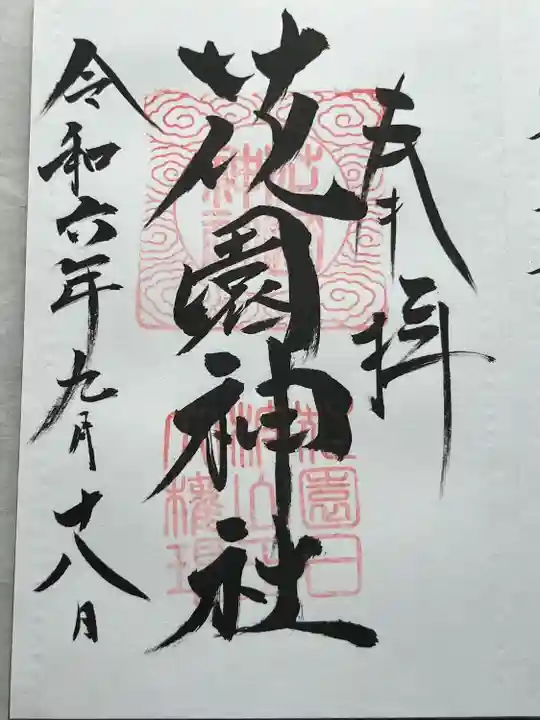 奉拝
花園神社
令和六年九月十八日